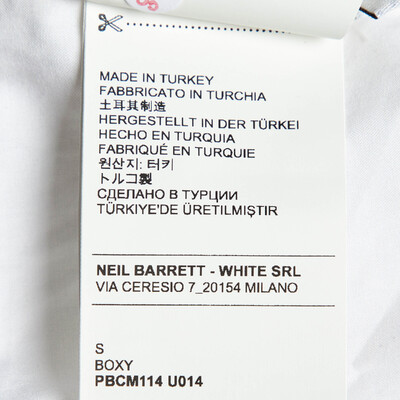 MADE IN TURKEY
FABBRICATO IN TURCHIA
土耳其制造
HERGESTELLT IN DER TÜRKEI
HECHO EN TURQUIA
FABRIQUÉ EN TURQUIE
원산지: 터키
トルコ製
СДЕЛАНО В ТУРЦИИ
TÜRKİYE'DE ÜRETİLMİŞTİR
NEIL BARRETT - WHITE SRL
VIA CERESIO 7_20154 MILANO
S
BOXY
PBCM114 U014